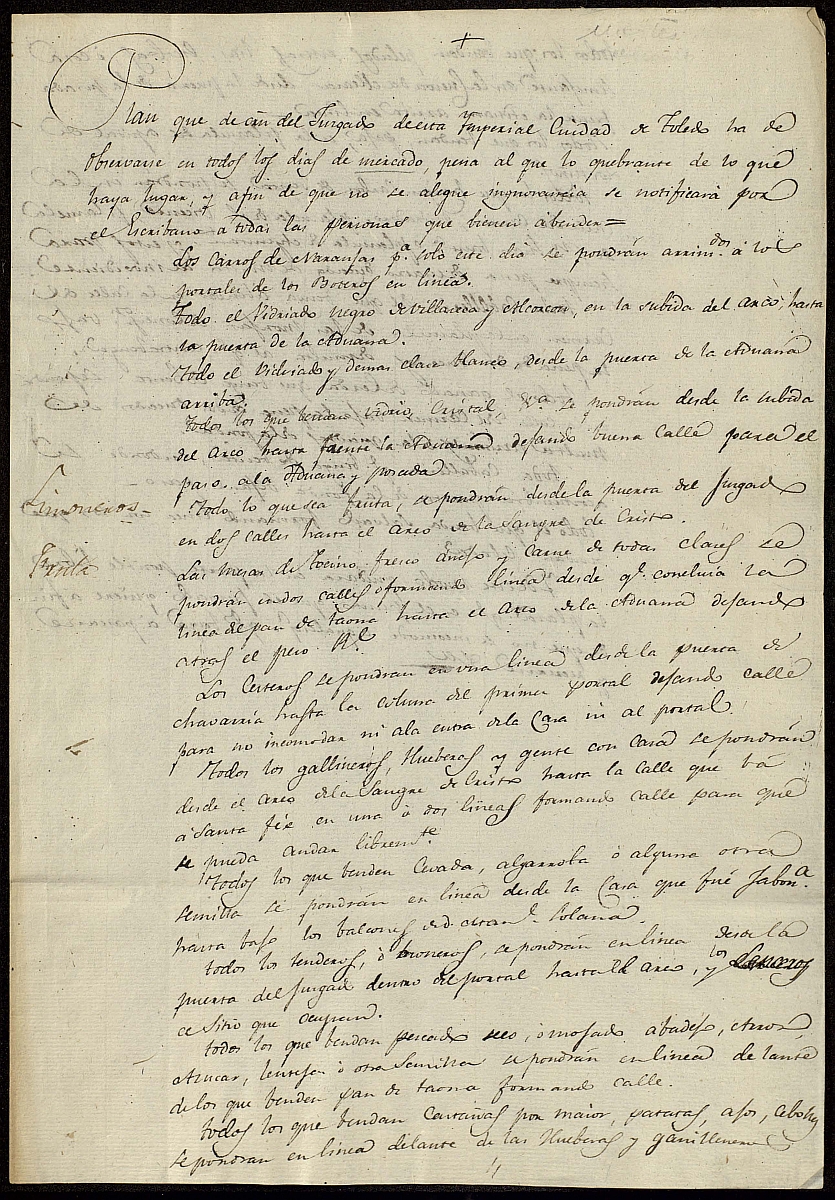 +
Plan que de orn del Juzgado de esta Ymperial Ciudad de Toledo ha de
Observarse en todos los dias de mercado, pena al que lo quebrante de lo que
haya lugar, y afin de que no se alegue ingnorancia se notificará por
el Escribano a todas las personas que bienen á bender=
Los Carros de Naransas p.ª solo este dia se pondrán arrim.dos á los
portales de los Boteros en linea.
Todo el Vidriado negro de Villaseca y Alcorcon, en la subida del arco, hasta
la puerta de la Aduana.
Todo el Vidriado y demas clase blanco, desde la puerta de la Aduana
arriba.
Todos los que bendan Vidrio, Cristal, &.ª se pondrán desde la subida
del Arco hasta frente la Aduana desando buena Calle para el
paso a la Aduana y posada
Limoneros=
Todo lo que sea fruta, se pondrán desde la puerta del Juzgado
en dos calles hasta el Arco de la Sangre de Cristo.
Fruta
Las mesas de tocino fresco añejo y Carne de todas clases se
pondrán en dos calles ó formando linea desde q.e concluia la
linea del pan de taona hasta el Arco de la Aduana desando
atras el peso R.l
Los Cesteros se pondran en una linea desde la puerta de
chavarria hasta la coluna del primer portal desando calle
para no incomodar ni a la entra de la Casa ni al portal
Todos los gallineros, Hueberos y gente con Casa se pondrán
desde el arco de la Sangre de Cristo hasta la Calle que ba
á Santa fée en una ó dos lineas formando calle para que
se pueda andar librem.te
Todos los que benden Cevada, algarroba ó alguna otra
semilla se pondrán en linea desde la Casa que fué Jabon.ª
hasta baso los balcones de d. Solana
todos los tenderos, ó se pondrán en linea desde la
puerta del Juzgado dentro del portal hasta el Arco, y los
el Sitio que ocupan.
todos los que bendan pescado seco, ó mosado abadéso, Arroz,
Azucar, lentesa ó otra Semilla se pondrán en linea delante
de los que benden pan de taona formando calle.
todos los que bendan Castañas por maior, patatas, asos, cebollas
se pondran en linea delante de las Hueberas y gallineros